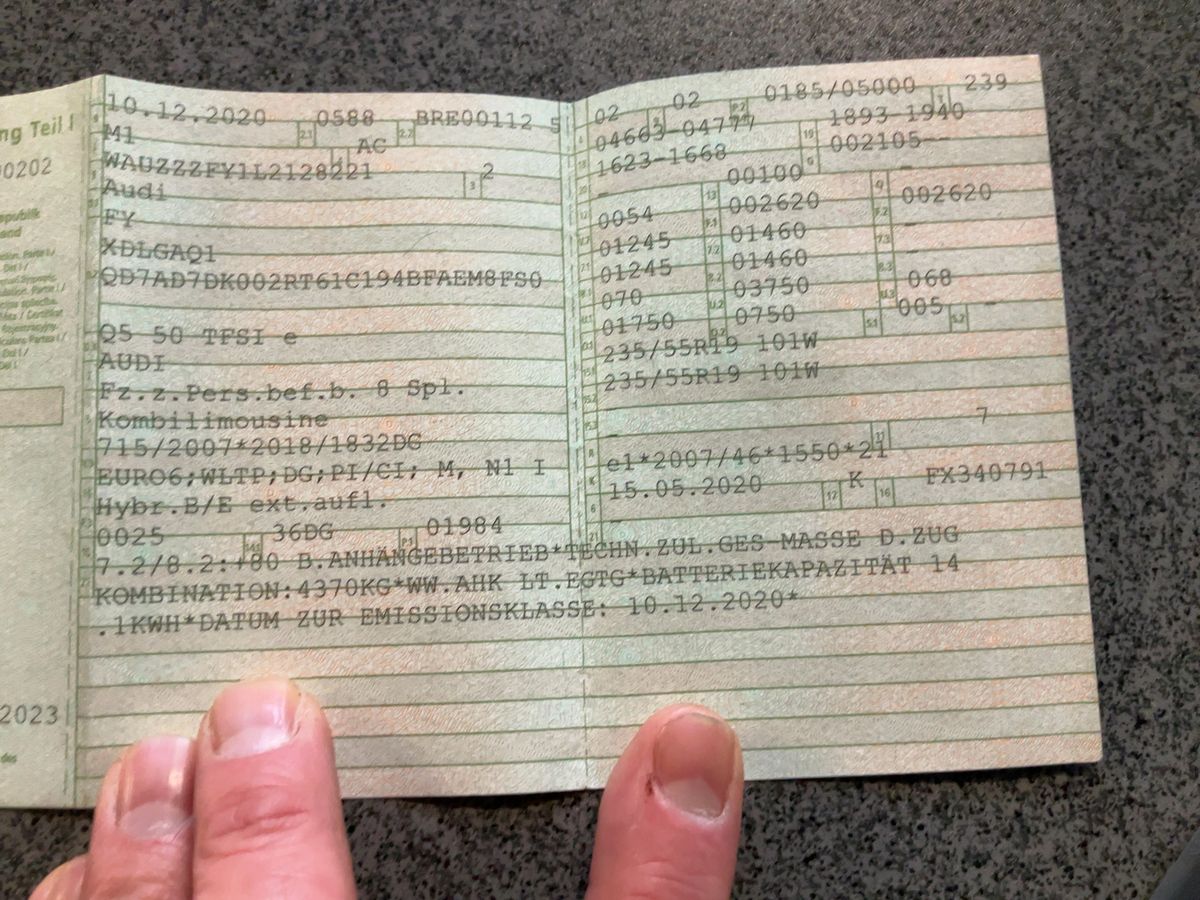 ng Teil I
00202
epublik
and
2023
des
10.12.2020 2.1 0588 2.2 BRE00112 5
M1 AC
WAUZZZFY1L2128221 3 2
Audi
FY
XDLGAQ1
QD7AD7DK002RT61C194BFAEM8FS0
Q5 50 TFSI e
AUDI
Fz.z.Pers.bef.b. 8 Spl.
Kombilimousine
715/2007*2018/1832DG
EURO6;WLTP;DG;PI/CI; M, N1 I
Hybr.B/E ext.aufl.
0025 36DG P.1 01984
02 02 P.2 0185/05000 239
04663-04777 19 1893-1940
1623-1668 G 002105--
- 13 00100 Q -
0054 002620 F.2 002620
01245 7.2 01460 7.3 -
01245 8.2 01460 8.3 -
070 U.2 03750 U.3 068
01750 0750 S.1 005 S.2 -
235/55R19 101W
235/55R19 101W
-
- 7
e1*2007/46*1550*21
15.05.2020 17 K 16 FX340791
-
7.2/8.2:+80 B.ANHÄNGEBETRIEB*TECHN.ZUL.GES-MASSE D.ZUG
KOMBINATION:4370KG*WW.AHK LT.EGTG*BATTERIEKAPAZITÄT 14
.1KWH*DATUM ZUR EMISSIONSKLASSE: 10.12.2020*